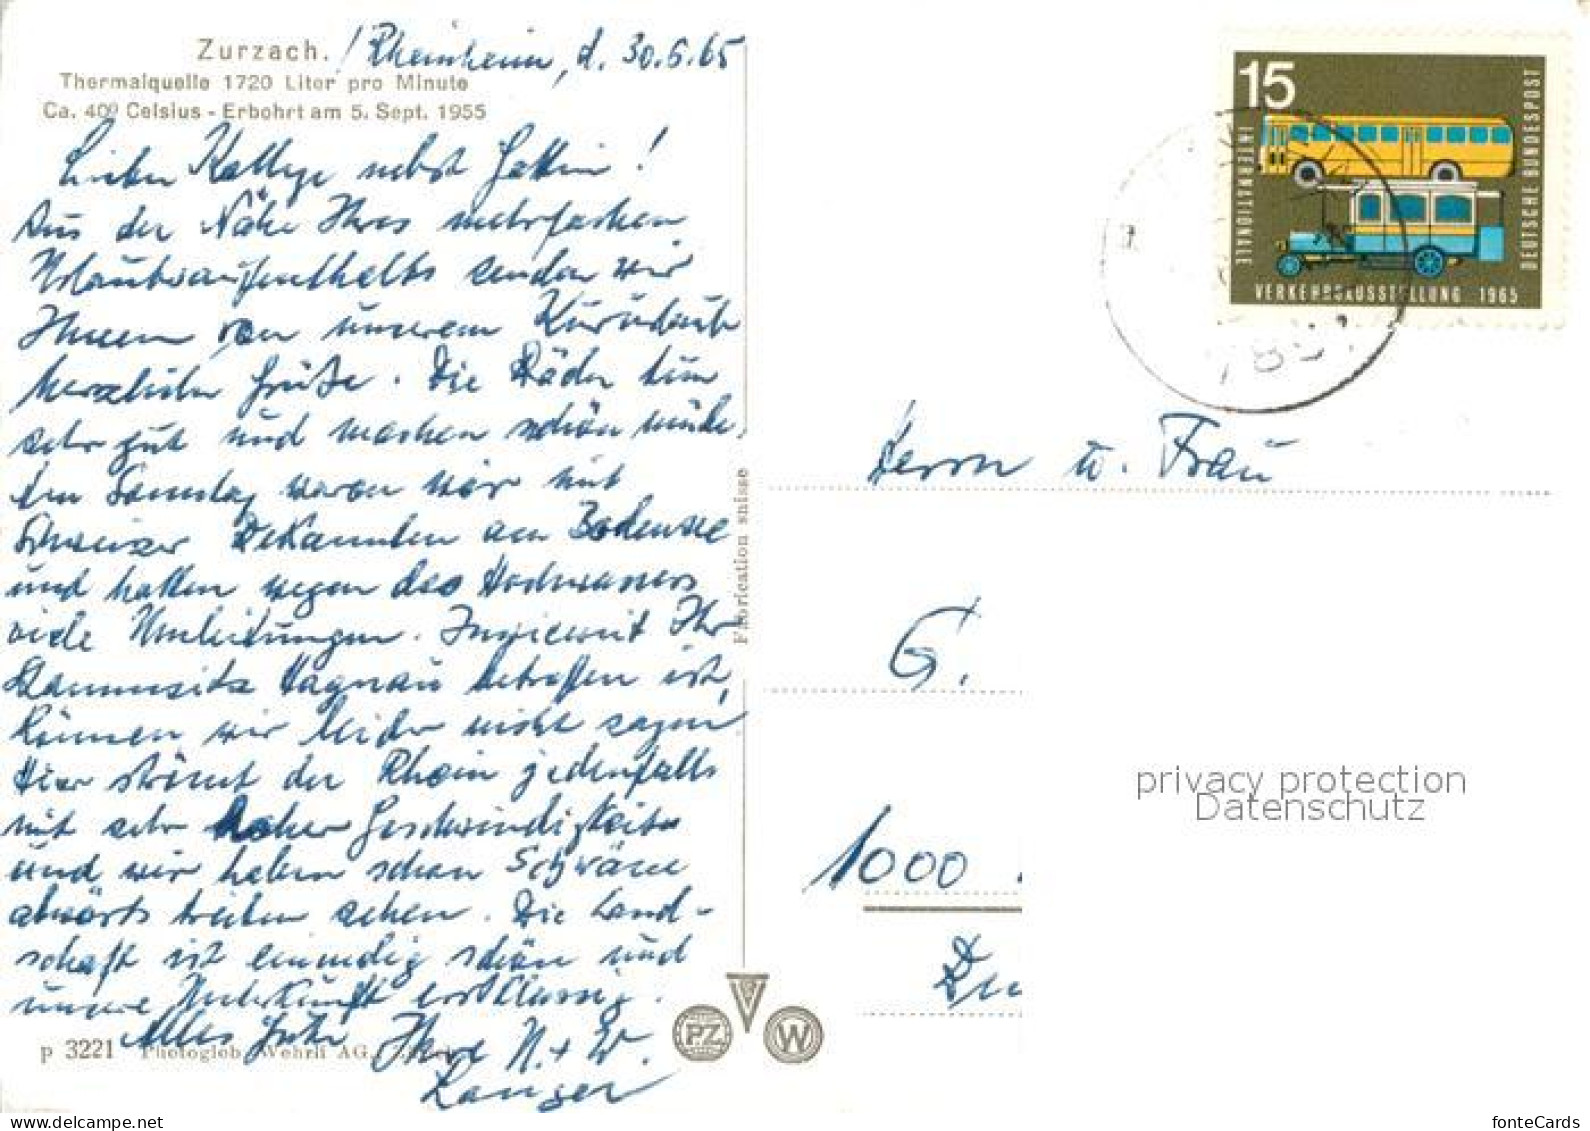 Zurzach. / Rheinheim, d. 30.6.65
Thermalquelle 1720 Liter pro Minute
Ca. 40º Celsius - Erbohrt am 5. Sept. 1955
Lieber Kollege nebst Gattin!
Aus der Nähe Ihres mehrfachen
Urlaubsaufenthalts senden wir
Ihnen von unserem Kururlaub
herzliche Grüße. Die Bäder tun
sehr gut und machen schön müde.
Am Sonntag waren wir mit
Schweizer Bekannten am Bodensee
und hatten wegen des Hochwassers
viele Umleitungen. Inwieweit Ihr
Stammsitz Hagnau betroffen ist,
können wir leider nicht sagen,
Hier strömt der Rhein jedenfalls
mit sehr hoher Geschwindigkeit
und wir haben schon Schwäne
abwärts treiben sehen. Die Land-
schaft ist einmalig schön und
unsere Unterkunft erstklassig.
Alles Gute Ihre N. + W.
Langer
p 3221 Photoglob-Wehrli AG.,
Fabrication suisse
PZ W
15
INTERNATIONALE
VERKEHRSAUSSTELLUNG 1965
DEUTSCHE BUNDESPOST
Herrn u. Frau
G.
1000
privacy protection
Datenschutz
www.delcampe.net
fonteCards